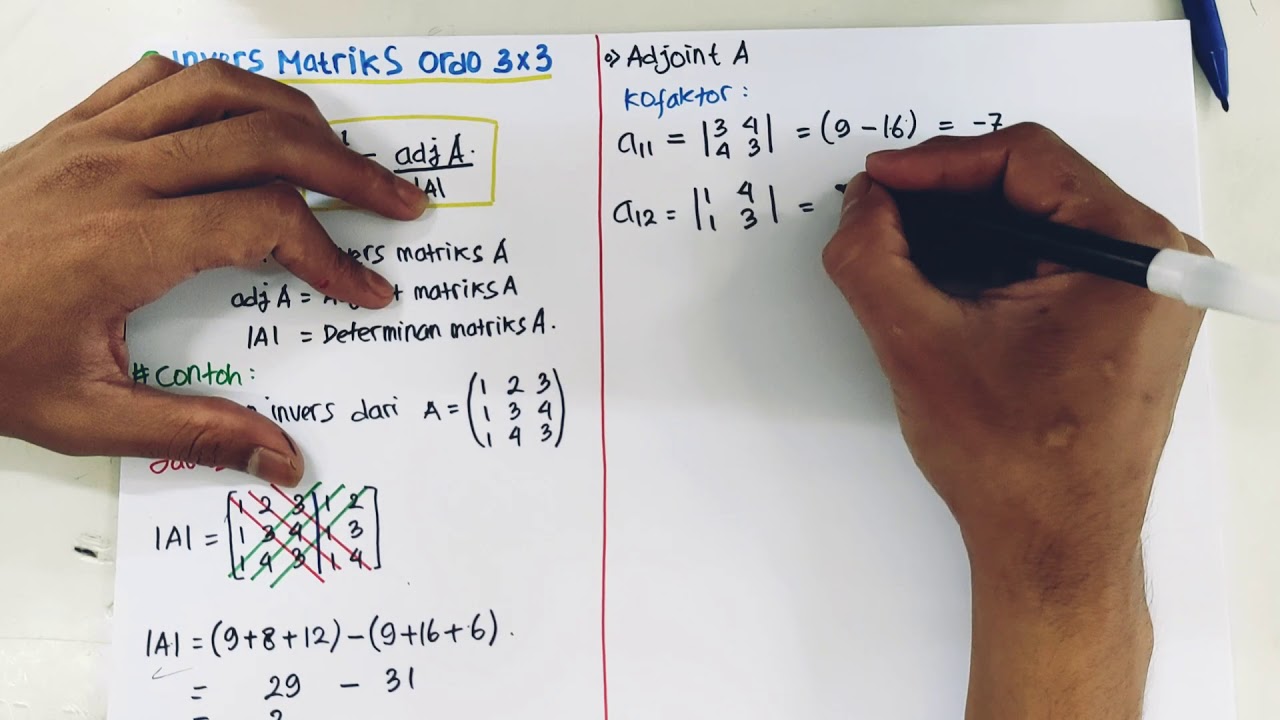 Invers Matriks Ordo 3×3
adj A.
|A|
invers matriks A
adj A = matriks A
|A| = Determinan matriks A.
# Contoh:
invers dari A = (1 2 3
1 3 4
1 4 3)
|A| = [1 2 3 | 1 2
1 3 4 | 1 3
1 4 3 | 1 4]
|A| = (9+8+12) - (9+16+6).
= 29 - 31
=
Adjoint A
Kofaktor :
a11 = |3 4
4 3| = (9 - 16) = -7
a12 = |1 4
1 3| =